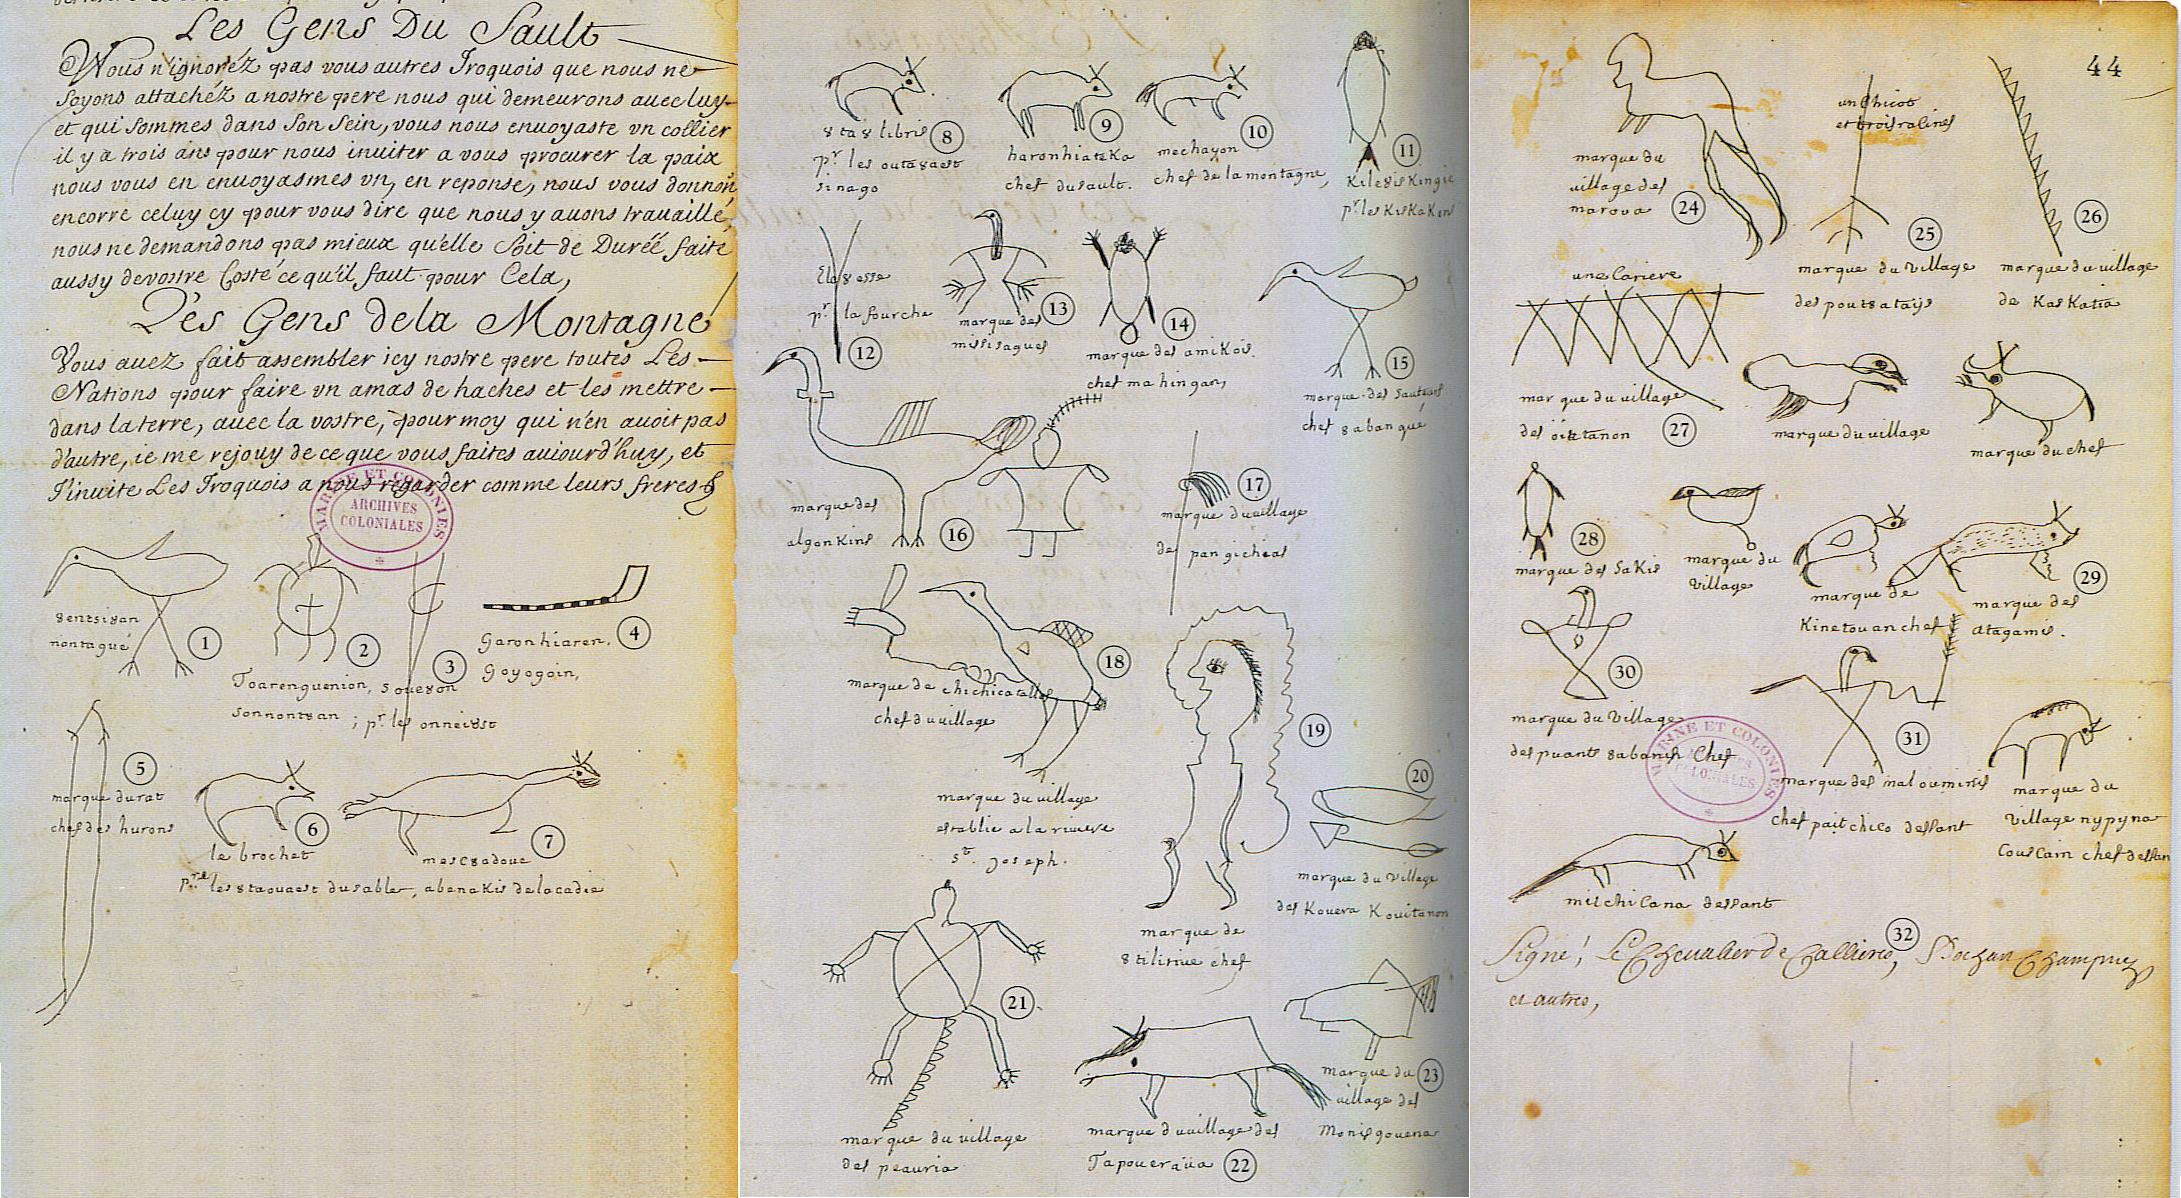 Les Gens Du Sault
Vous n'ignoréz pas vous autres Iroquois que nous ne
soyons attachéz a nostre pere nous qui demeurons avec luy
et qui sommes dans son sein, vous nous envoyaste vn collier
il y a trois ans pour nous inuiter a vous procurer la paix
nous vous en enuoyasmes vn, en reponse, nous vous donnon
encorre celuy cy pour vous dire que nous y auons trauaillé,
nous ne demandons pas mieux qu'elle soit de Duréé faite
aussy de vostre Costé ce qu'il faut pour Cela,
Les Gens de la Montagne
Vous auez fait assembler icy nostre pere toutes Les
Nations pour faire vn amas de haches et les mettre
dans la terre, auec la vostre, pour moy qui n'en auoit pas
d'autre, ie me rejouy de ce que vous faites aujourd'huy, et
J'inuite Les Iroquois a nous regarder comme leurs freres
MARINE ET COLONIES
ARCHIVES
COLONIALES
8entsi8an
nontagué
1
2
3
4
Toarenguenion,
sonnont8an ; pr les onnei8st
Garonhiaren,
Goyogoin,
5
marque du rat
chef des hurons
6
le brochet
7
mesk8adoue
pr les 8taouaest du sable, abenakis de lacadie
8
pr les outa8aest
sinago
9
haronhiateka
chef du sault.
10
mechayon
chef de la montagne,
11
Kile8isKingie
pr les KisKaKons
Ela8esse
pr la fourche
12
13
marque des
missisagues
14
marque des amikois.
chef mahingan,
15
marque des sauteurs
chef 8abangué
marque des
algonkins
16
17
marque du village
de pangicheas
18
marque de chichicatallo
chef du village
marque du village
establie a la riuiere
st. Joseph.
19
marque de
8tilirine chef
20
marque du village
des Kouera Kouitanon
21
marque du village
des peauria
marque du village des
Tapoueraüa
22
marque du
23
village des
Monisgouena
44
marque du
village des
marova
24
un chicot
et trois racines
25
marque du village
des pou8atayis
26
marque du village
de KasKatia
une Cariere
marque du village
des oiietanon
27
marque du village
marque du chef
28
marque des SaKis
marque du
village
marque de
Kinetouan chef
29
marque des
atagamis.
30
marque du village
des puants 8abanich Chef
31
marque des malouminis
chef paitchico dessant
marque du
village nypyna
MARINE ET COLONIES
COLONIALES
milchilana dessant
32
Signé, Le Chevalier de Callieres,
et autres,